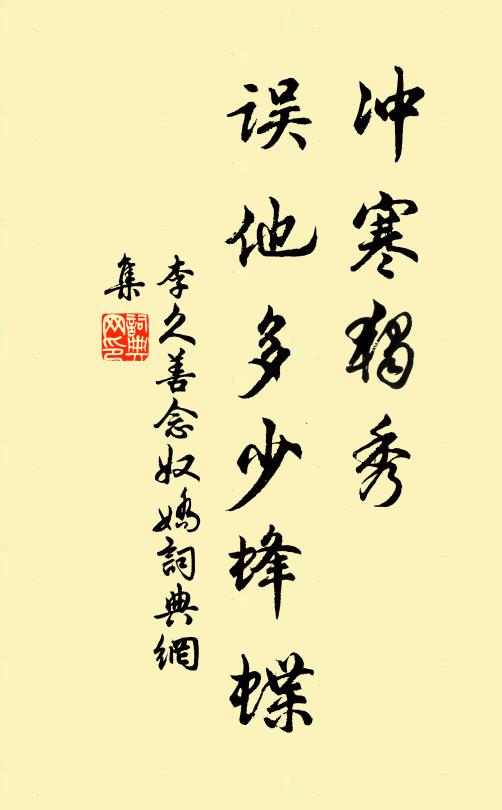 冲寒獨秀
误他多少蜂蝶
李久善念奴嬌詞典網
集
詞典
网印